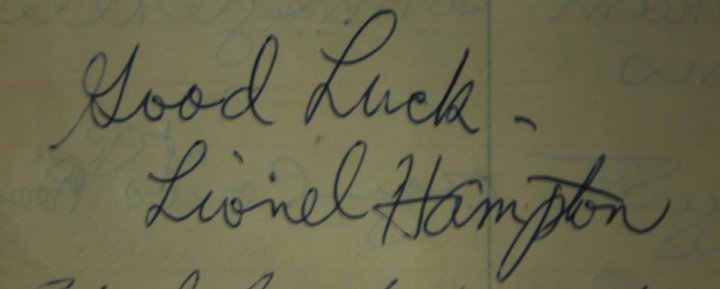 Good Luck -
Lionel Hampton